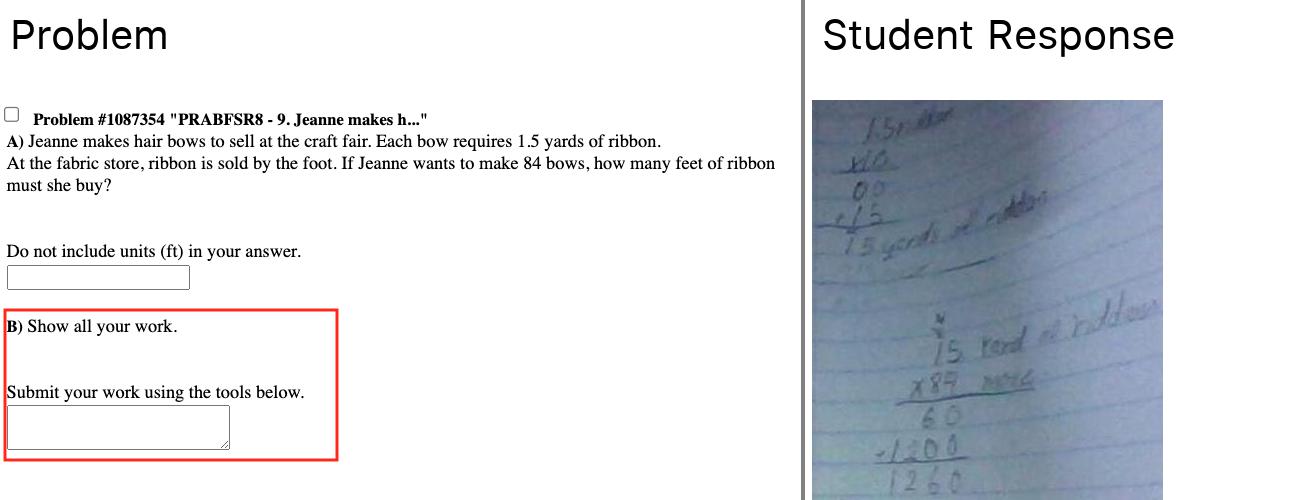 Problem
Problem #1087354 "PRABFSR8 - 9. Jeanne makes h..."
A) Jeanne makes hair bows to sell at the craft fair. Each bow requires 1.5 yards of ribbon.
At the fabric store, ribbon is sold by the foot. If Jeanne wants to make 84 bows, how many feet of ribbon
must she buy?
Do not include units (ft) in your answer.
B) Show all your work.
Submit your work using the tools below.
Student Response
1.5
x10
00
+15
15 yards of
15 yard of
x84
60
+1200
1260